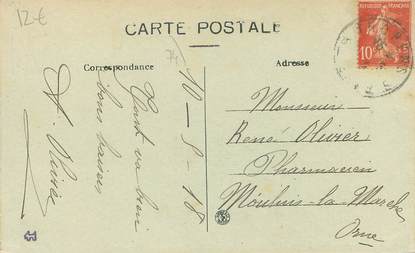 12€
CARTE POSTALE
74
Correspondance
Adresse
RÉPUBLIQUE FRANÇAISE
10c
10-8-18
Tout va bien
bons baisers
A. Olivier
Monsieur
René Olivier
Pharmacien
Moulins-la-Marche
Orne